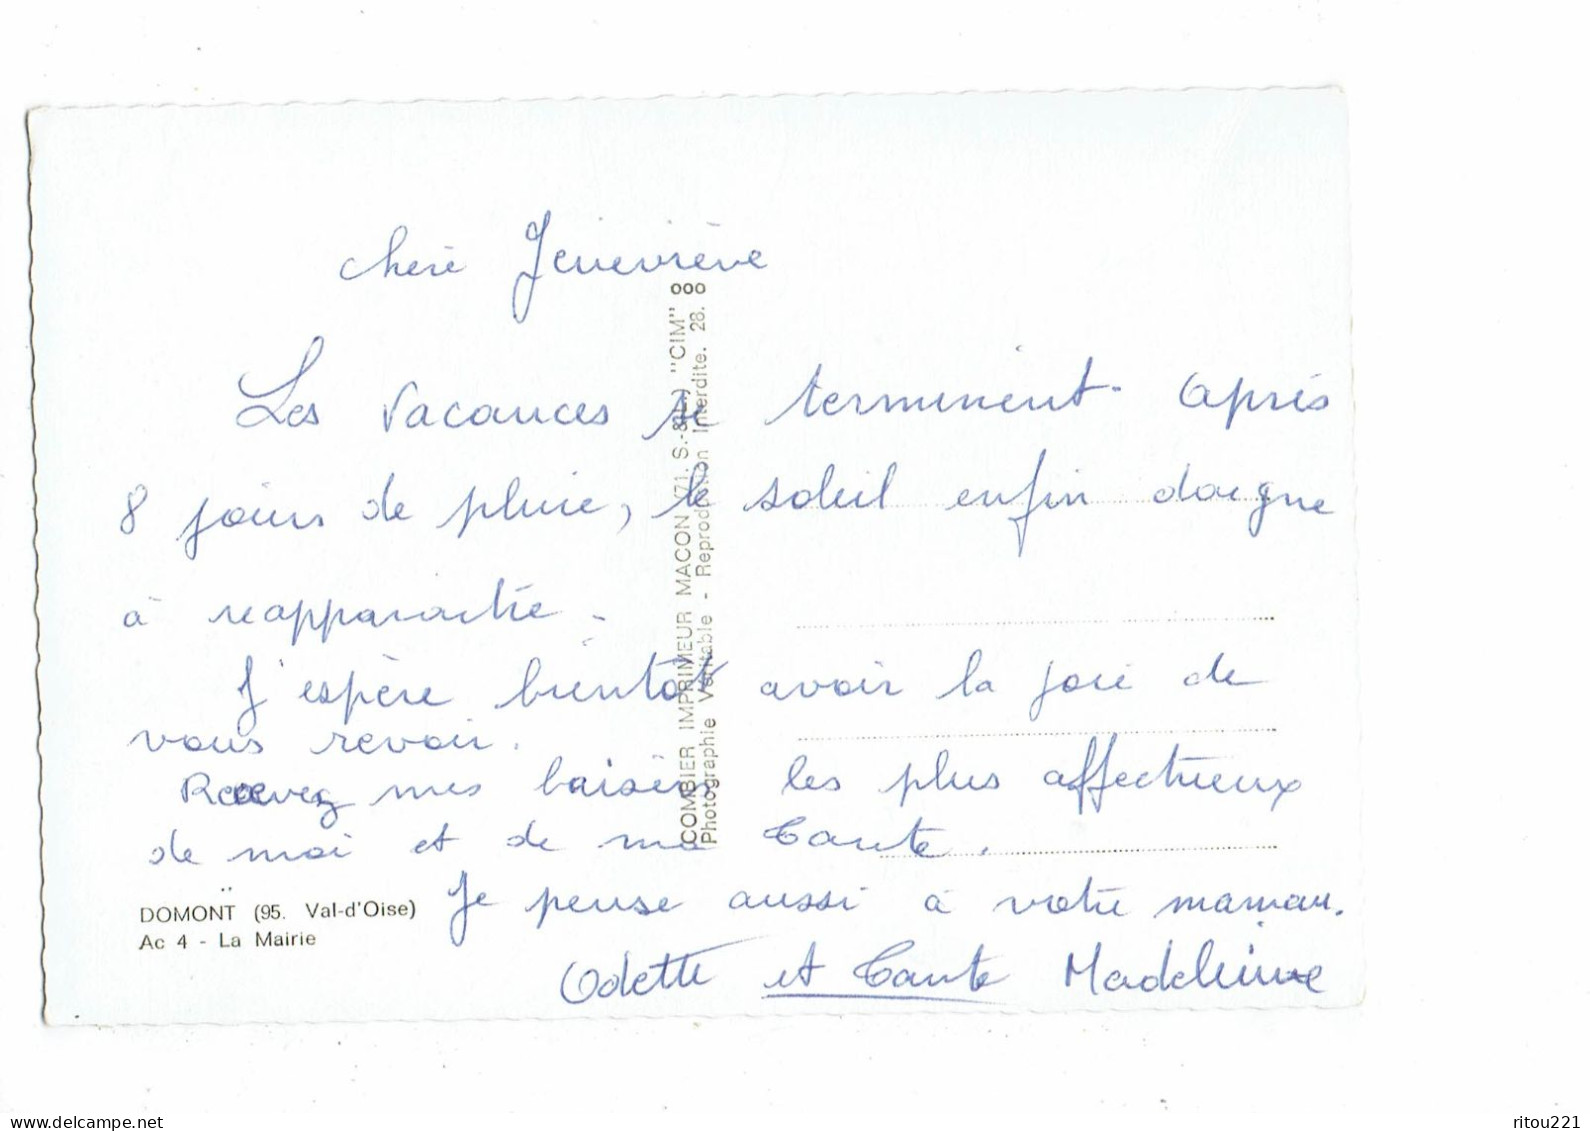 chère Geneviève
Les vacances se terminent. Après
8 jours de pluie, le soleil enfin daigne
à reapparaitre -
J'espère bientôt avoir la joie de
vous revoir.
Recevez mes baisers les plus affectueux
de moi et de ma Tante.
Je pense aussi à votre maman.
Odette et Tante Madeleine
DOMONT (95. Val-d'Oise)
Ac 4 - La Mairie
COMBIER IMPRIMEUR MACON (71. S.-&-L.) "CIM"
Photographie Véritable - Reproduction Interdite. 28.
www.delcampe.net
ritou221